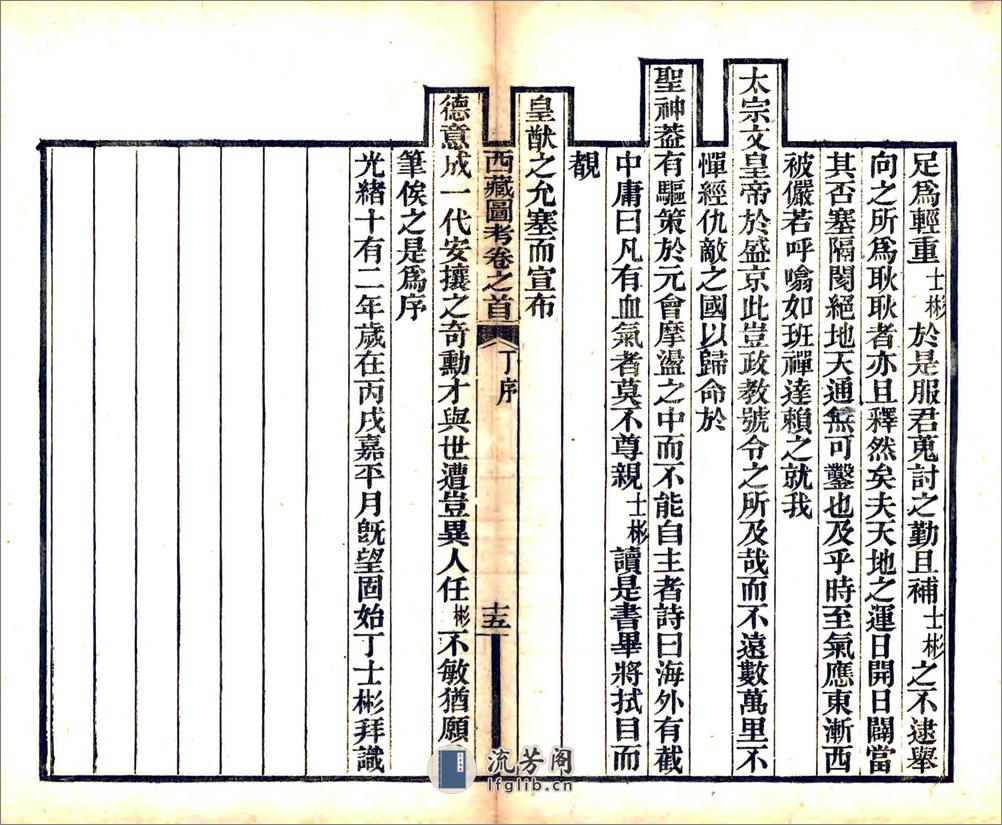 足爲輕重士彬於是服君蒐討之勤且補士彬之不逮舉
向之所爲耿耿者亦且釋然矣夫天地之運日開日闢當
其否塞隔閡絕地天通無可鑿也及乎時至氣應東漸西
被儼若呼噏如班禪達賴之就我
太宗文皇帝於盛京此豈政教號令之所及哉而不遠數萬里不
憚經仇敵之國以歸命於
聖神葢有驅策於元會摩盪之中而不能自主者詩曰海外有截
中庸曰凡有血氣者莫不尊親士彬讀是書畢將拭目而
覩
皇猷之允塞而宣布
西藏圖考卷之首 丁序 十五
德意成一代安攘之奇勳才與世遭豈異人任彬不敏猶願
筆俟之是爲序
光緒十有二年歲在丙戌嘉平月旣望固始丁士彬拜識
流芳阁
lfglib.cn